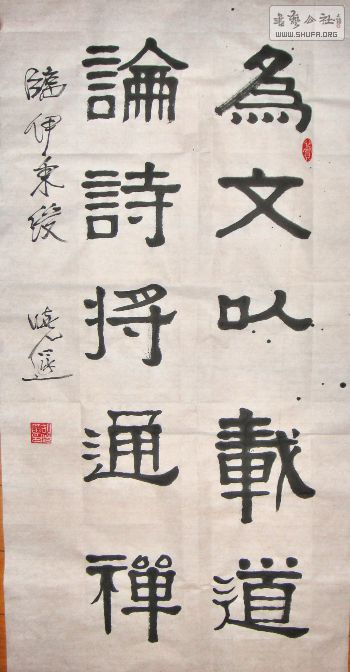 為文以載道
論詩將通禪
臨伊秉綬
書藝公社
WWW.SHUFA.ORG